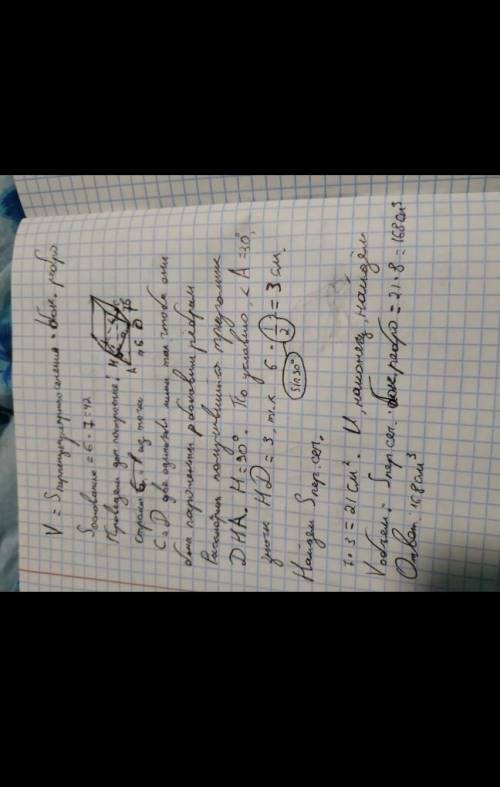 V = Sперпендик. сечения · бок. ребро
Sоснования = 6 · 7 = 42
Проведём доп построения:
H
A 6 D 7 C
из точек
C и D две одинаковые линии так, чтобы они
были перпенд. боковым рёбрам
Рассмотрим получившийся треугольник
DHA. H = 90°. По условию, < A = 30°,
значит HD = 3, т.к 6 · 1/2 = 3 см.
sin30°
Найдём Sпер. сеч.
7 · 3 = 21 см². И, наконец, найдём
Vобъём: Sпер. сеч. · бок ребро = 21 · 8 = 168 см³
Ответ: 168 см³